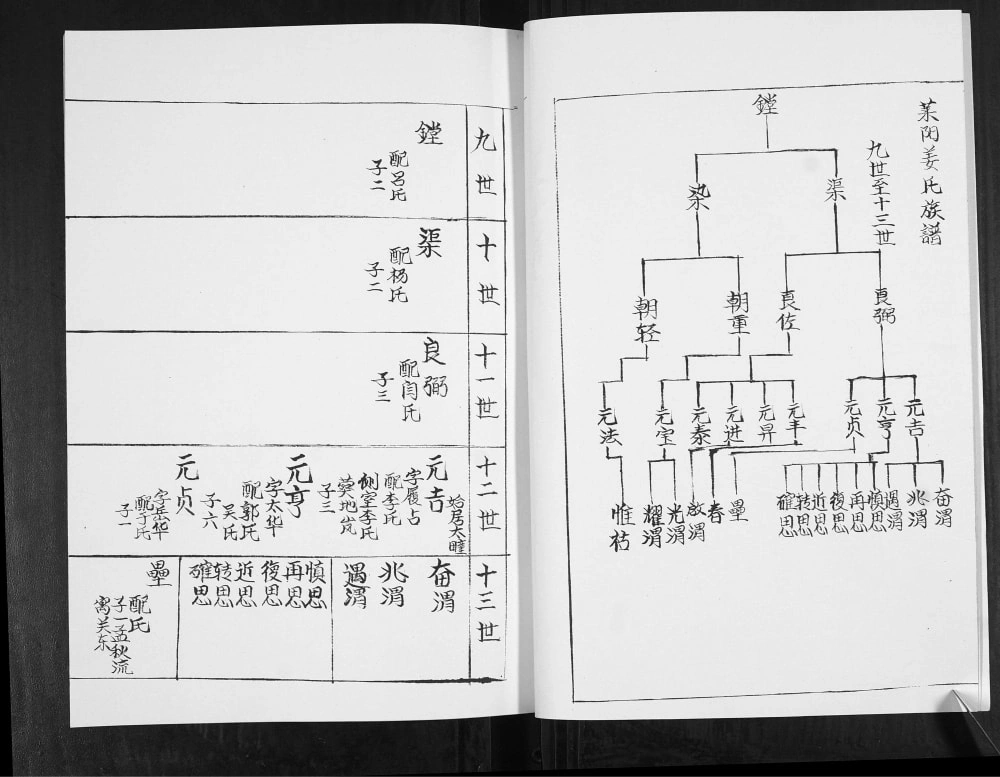 莱阳姜氏族譜
九世至十三世
鏜
渠
染
良弼
良佐
朝重
朝轻
元吉
元亨
元贞
元丰
元昇
元进
元泰
元宝
元法
奋渭
兆渭
遇渭
慎思
再思
復思
近思
转思
確思
壘
春
啟渭
光渭
耀渭
惟祜
九世
鏜
配吕氏
子二
十世
渠
配杨氏
子二
十一世
良弼
配闫氏
子三
十二世
始居太疃
元吉
字履占
配李氏
侧室李氏
葬地岚
子三
元亨
字太华
配郭氏
吴氏
子六
元贞
字岳华
配于氏
子一
十三世
奋渭
兆渭
遇渭
慎思
再思
復思
近思
转思
確思
壘
配氏
子一孟秋流
寓关东